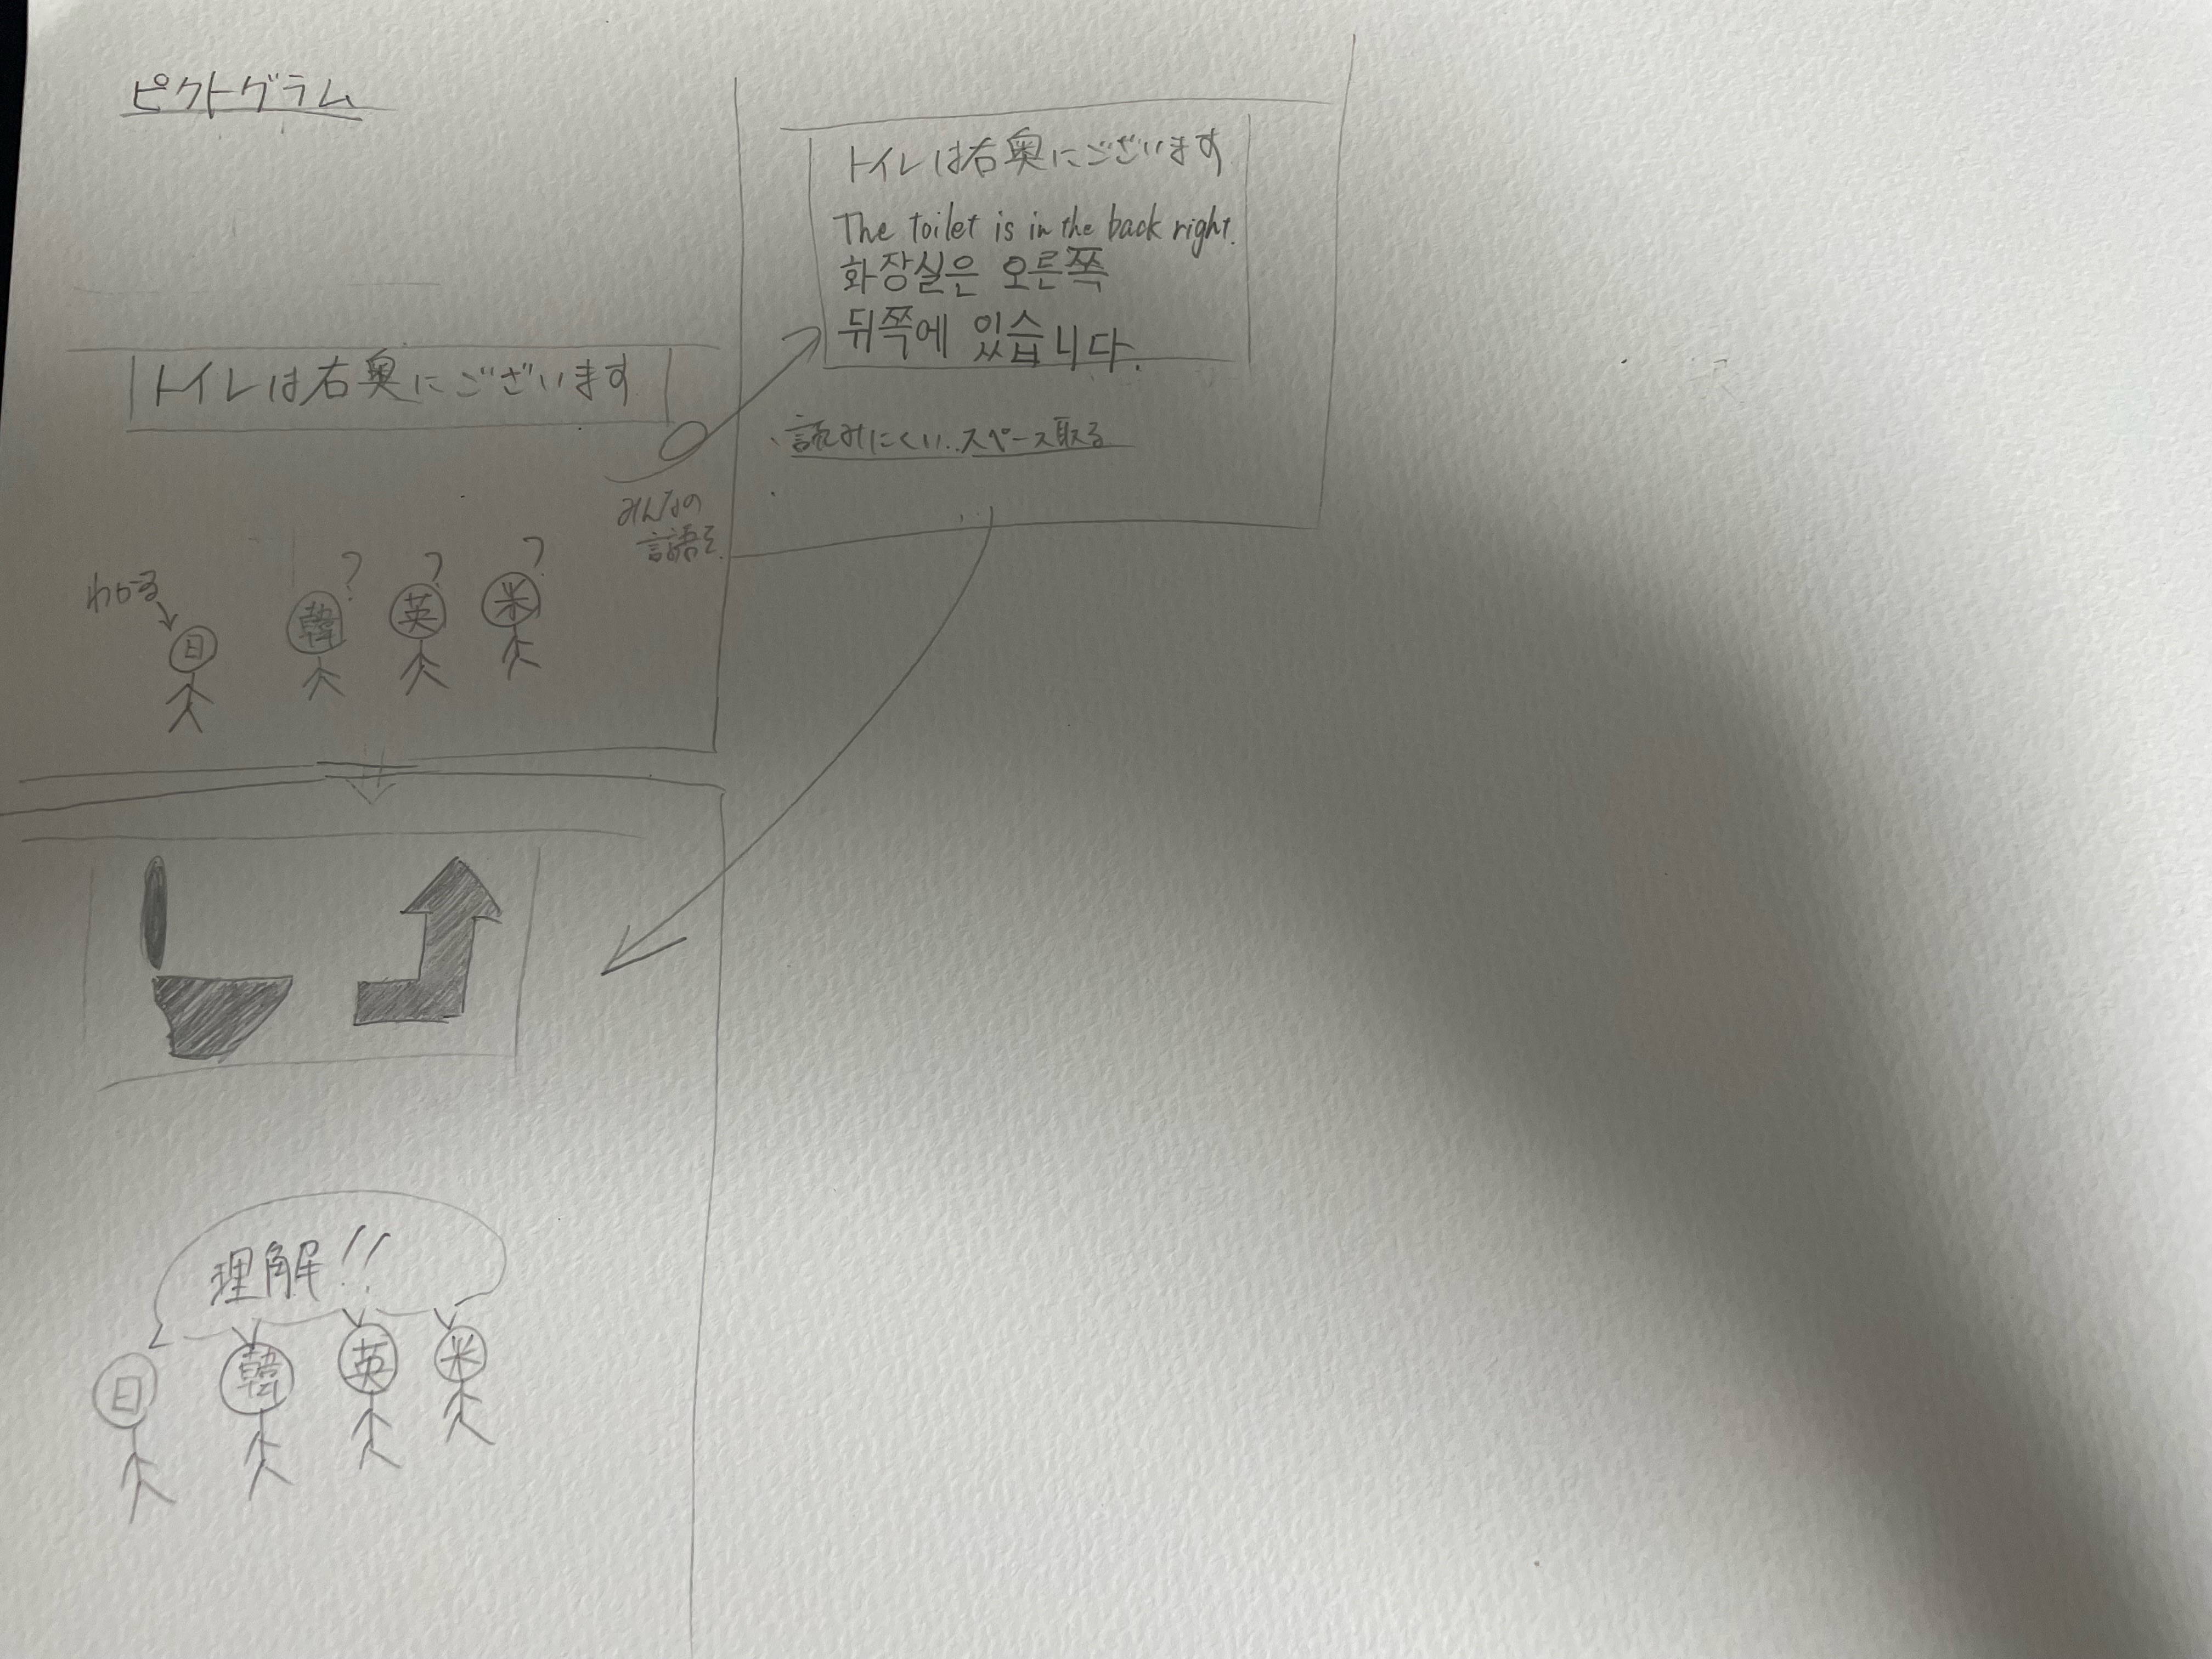 ピクトグラム
トイレは右奥にございます
みんなの
言語を
わかる
日
韓?
英?
米?
トイレは右奥にございます
The toilet is in the back right.
화장실은 오른쪽
뒤쪽에 있습니다.
読みにくい..スペース取る
理解!!
日
韓
英
米